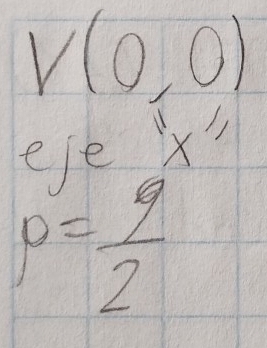 V(0,0)
eje "x"
p=9/2